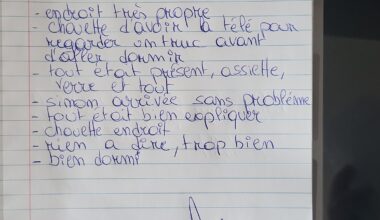 - endroit très propre
- chouette d'avoir la télé pour
regarder un truc avant
d'aller dormir
- tout était présent, assiette,
verre et tout
- sinon arrivée sans problème
- tout était bien expliquer
- chouette endroit
- rien a dire, trop bien
- bien dormi